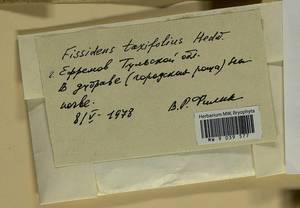 Fissidens taxifolius Hedw.
г. Ефремов Тульской обл.
В дубраве (городская роща) на
почве.
8/V - 1978
В.Р. Филин
Herbarium MW, Bryophyta